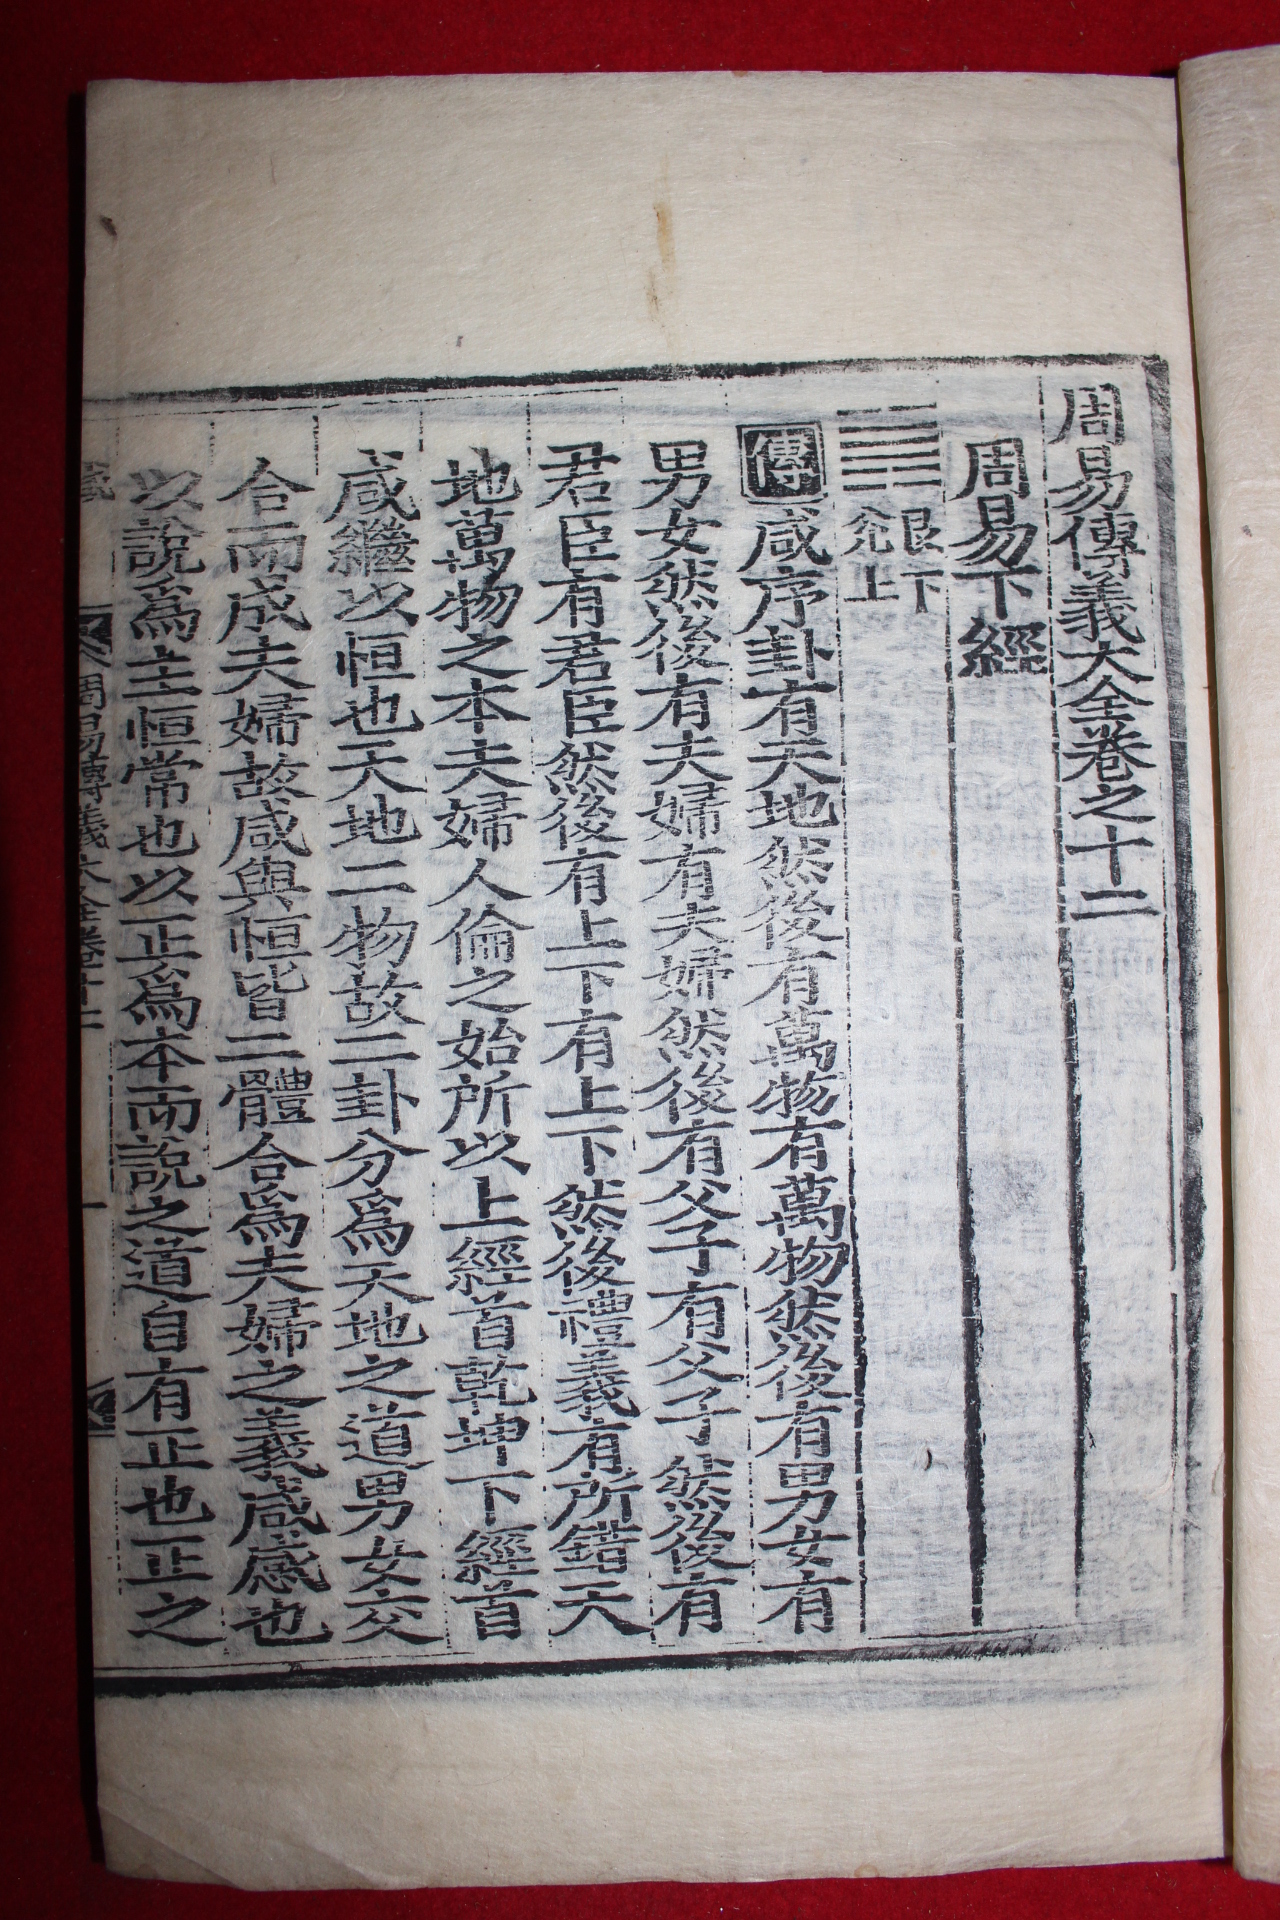 周易傳義大全卷之十二
周易下經
艮下
兌上
傳咸序卦有天地然後有萬物有萬物然後有男女有
男女然後有夫婦有夫婦然後有父子有父子然後有
君臣有君臣然後有上下有上下然後禮義有所錯天
地萬物之本夫婦人倫之始所以上經首乾坤下經首
咸繼以恒也天地二物故二卦分爲天地之道男女交
合而成夫婦故咸與恒皆二體合爲夫婦之義咸感也
以說爲主恒常也以正爲本而說之道自有正也正之
周易傳義大全卷十二 一